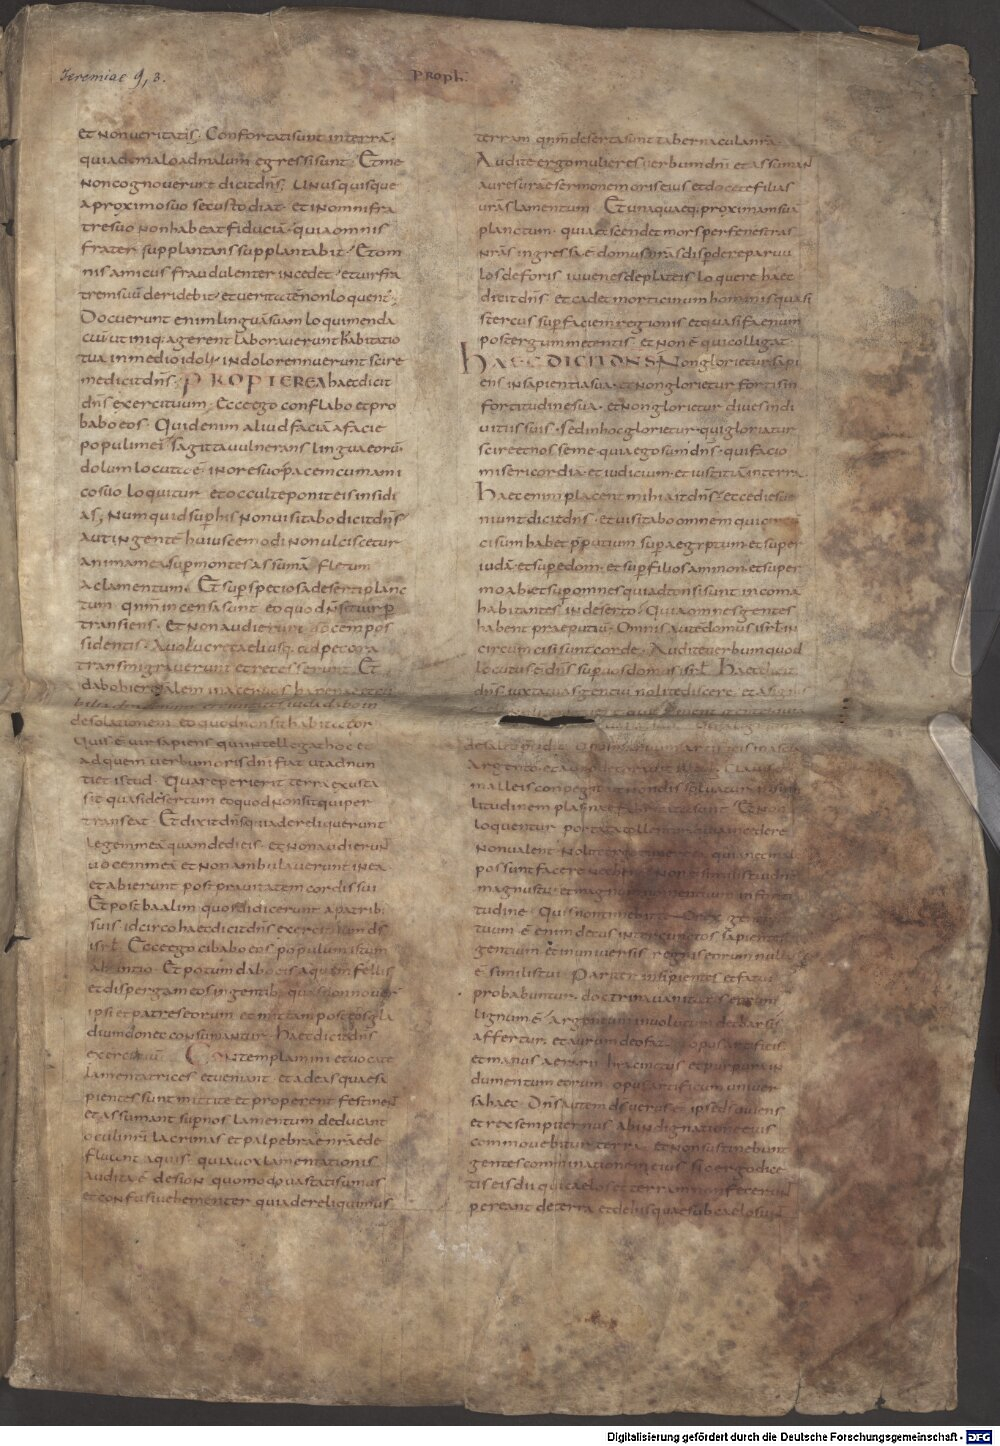 Jeremiae 9,3.
Proph
et non veritatis. Confortati sunt in terra.
quia de malo ad malum egressi sunt. Et me
non cognoverunt dicit dns; Unusquisque
a proximo suo se custodiat. et in omni fra
tre suo non habeat fiduciā. quia omnis
frater supplantans supplantabit. Et om
nis amicus fraudulenter incedet. et vir fra
trem suū deridebit. et veritatē non loquent.
Docuerunt enim linguā suam loqui menda
cium ut iniq: agerent laboraverunt habitatio
tua in medio doli. in dolo rennuerunt scire
me dicit dns. PROPTEREA haec dicit
dns exercituum. Ecce ego conflabo et pro
babo eos. Quid enim aliud faciā a facie
populi mei. Sagitta vulnerans lingua eorū.
dolum locuta ē. in ore suo pacem cum ami
co suo loquitur et occulte ponit ei insidi
as; Numquid sup his non visitabo dicit dns
aut in gente huiuscemodi non ulciscetur
anima mea sup montes assumā fletum
ac lamentum. Et sup speciosa deserti planc
tum qnm incensa sunt eo quod n sit vir p
transiens. Et non audierunt vocem pos
sidentis. A volucre caeli usq. ad pecora
transmigraverunt et recesserunt. Et
dabo hierusalem in acervos harenae et cu
desolationem eo quod non sit habitator
Quis ē vir sapiens qui intellegat hoc et
ad quem verbum oris dni fiat ut adnun
tiet istud. Quare perierit terra exusta
sit quasi desertum eo quod non sit qui per
transeat. Et dixit dns quia dereliquerunt
legem meā quam dedi eis. et non audierun
vocem meā et non ambulaverunt in ea
et abierunt post pravitatem cordis sui
Et post baalim quos didicerunt a patrib.
suis idcirco haec dicit dns exercituum ds
isrl. Ecce ego cibabo eos populum istum
absintio. Et potum dabo eis aquam fellis
et dispergam eos in gentib. quas non nover
ipsi et patres eorum et mittam post eos gla
dium donec consumantur. Haec dicit dns
exercituū. Contemplamini et vocate
lamentatrices et veniant. et ad eas quae sa
pientes sunt mittite et properent festinen
et assumant sup nos lamentum deducant
oculi nri lacrimas et palpebrae nrae de
fluant aquis. quia vox lamentationis
audita ē de sion quomodo vastati sumus
et confusi vehementer quia dereliquimus
terram qnm deserta sunt tabernacula nra
Audite ergo mulieres verbum dni et assuman
aures vrae sermonem oris eius et docete filias
vras lamentum Et unaquaeq. proximam suā
planctum. quia ascendet mors per fenestras
nras ingressa ē domus nras disperdere parvu
los deforis iuvenes de plateis loquere haec
dicit dns et cadet morticinum hominis quasi
stercus sup faciem regionis et quasi faenum
post tergum metentis et non ē qui colligat.
HAEC DICIT DNS Non glorietur sapi
ens in sapientia sua et non glorietur fortis in
fortitudine sua. et non glorietur dives in di
vitiis suis. sed in hoc glorietur qui gloriatur
scire et nosse me. quia ego sum dns. qui facio
misericordia et iudicium et iustitiā in terra
Haec enim placent mihi ait dns. ecce dies ve
niunt dicit dns. et visitabo omnem qui
cisum habet pputium. sup aegyptum et super
iudā. et sup edom et sup filios ammon. et super
moab et sup omnes qui adtonsi sunt in comā
habitantes in deserto. Quia omnes gentes
habent praeputiū. Omnis autē domus isrl in
circumcisi sunt corde. Audite verbum quod
locutus ē dns sup vos domus isrl. Haec dicit
dns iuxta vias gentium nolite discere et a signis
argento
malleis conpegit
litudinem palmae fabricata sunt Et non
loquentur portata tollentur
non valent. Nolite ergo timere ea quia nec mal
possunt facere nec bene Non est similis tui dne
magnus tu. et magnum nomen tuum in forti
tudine Quis non timebit te o rex gen
tuum ē enim decus inter cunctos sapientes
gentium et in universis regnis eorum null
ē similis tui Pariter insipientes et fatui
probabuntur. doctrina vanitatis eorum
lignum ē Argentum involutum de tharsis
affertur. et aurum de ofaz opus artificis
et manus aerarii hyacinctus et purpura in
dumentum eorum opus artificum univer
sa haec. Dns autem ds verus ē ipse ds vivens
et rex sempiternus ab indignatione eius
commovebitur terra et non sustinebunt
gentes comminationem eius sic ergo dice
tis eis dii qui caelos et terram non fecerun
pereant de terra et de his quae sub caelo sun
Digitalisierung gefördert durch die Deutsche Forschungsgemeinschaft - DFG